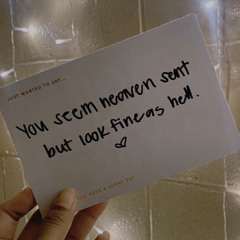 JUST WANTED TO SAY...
You seem heaven sent
but look fine as hell.
HAVE A GREAT DAY